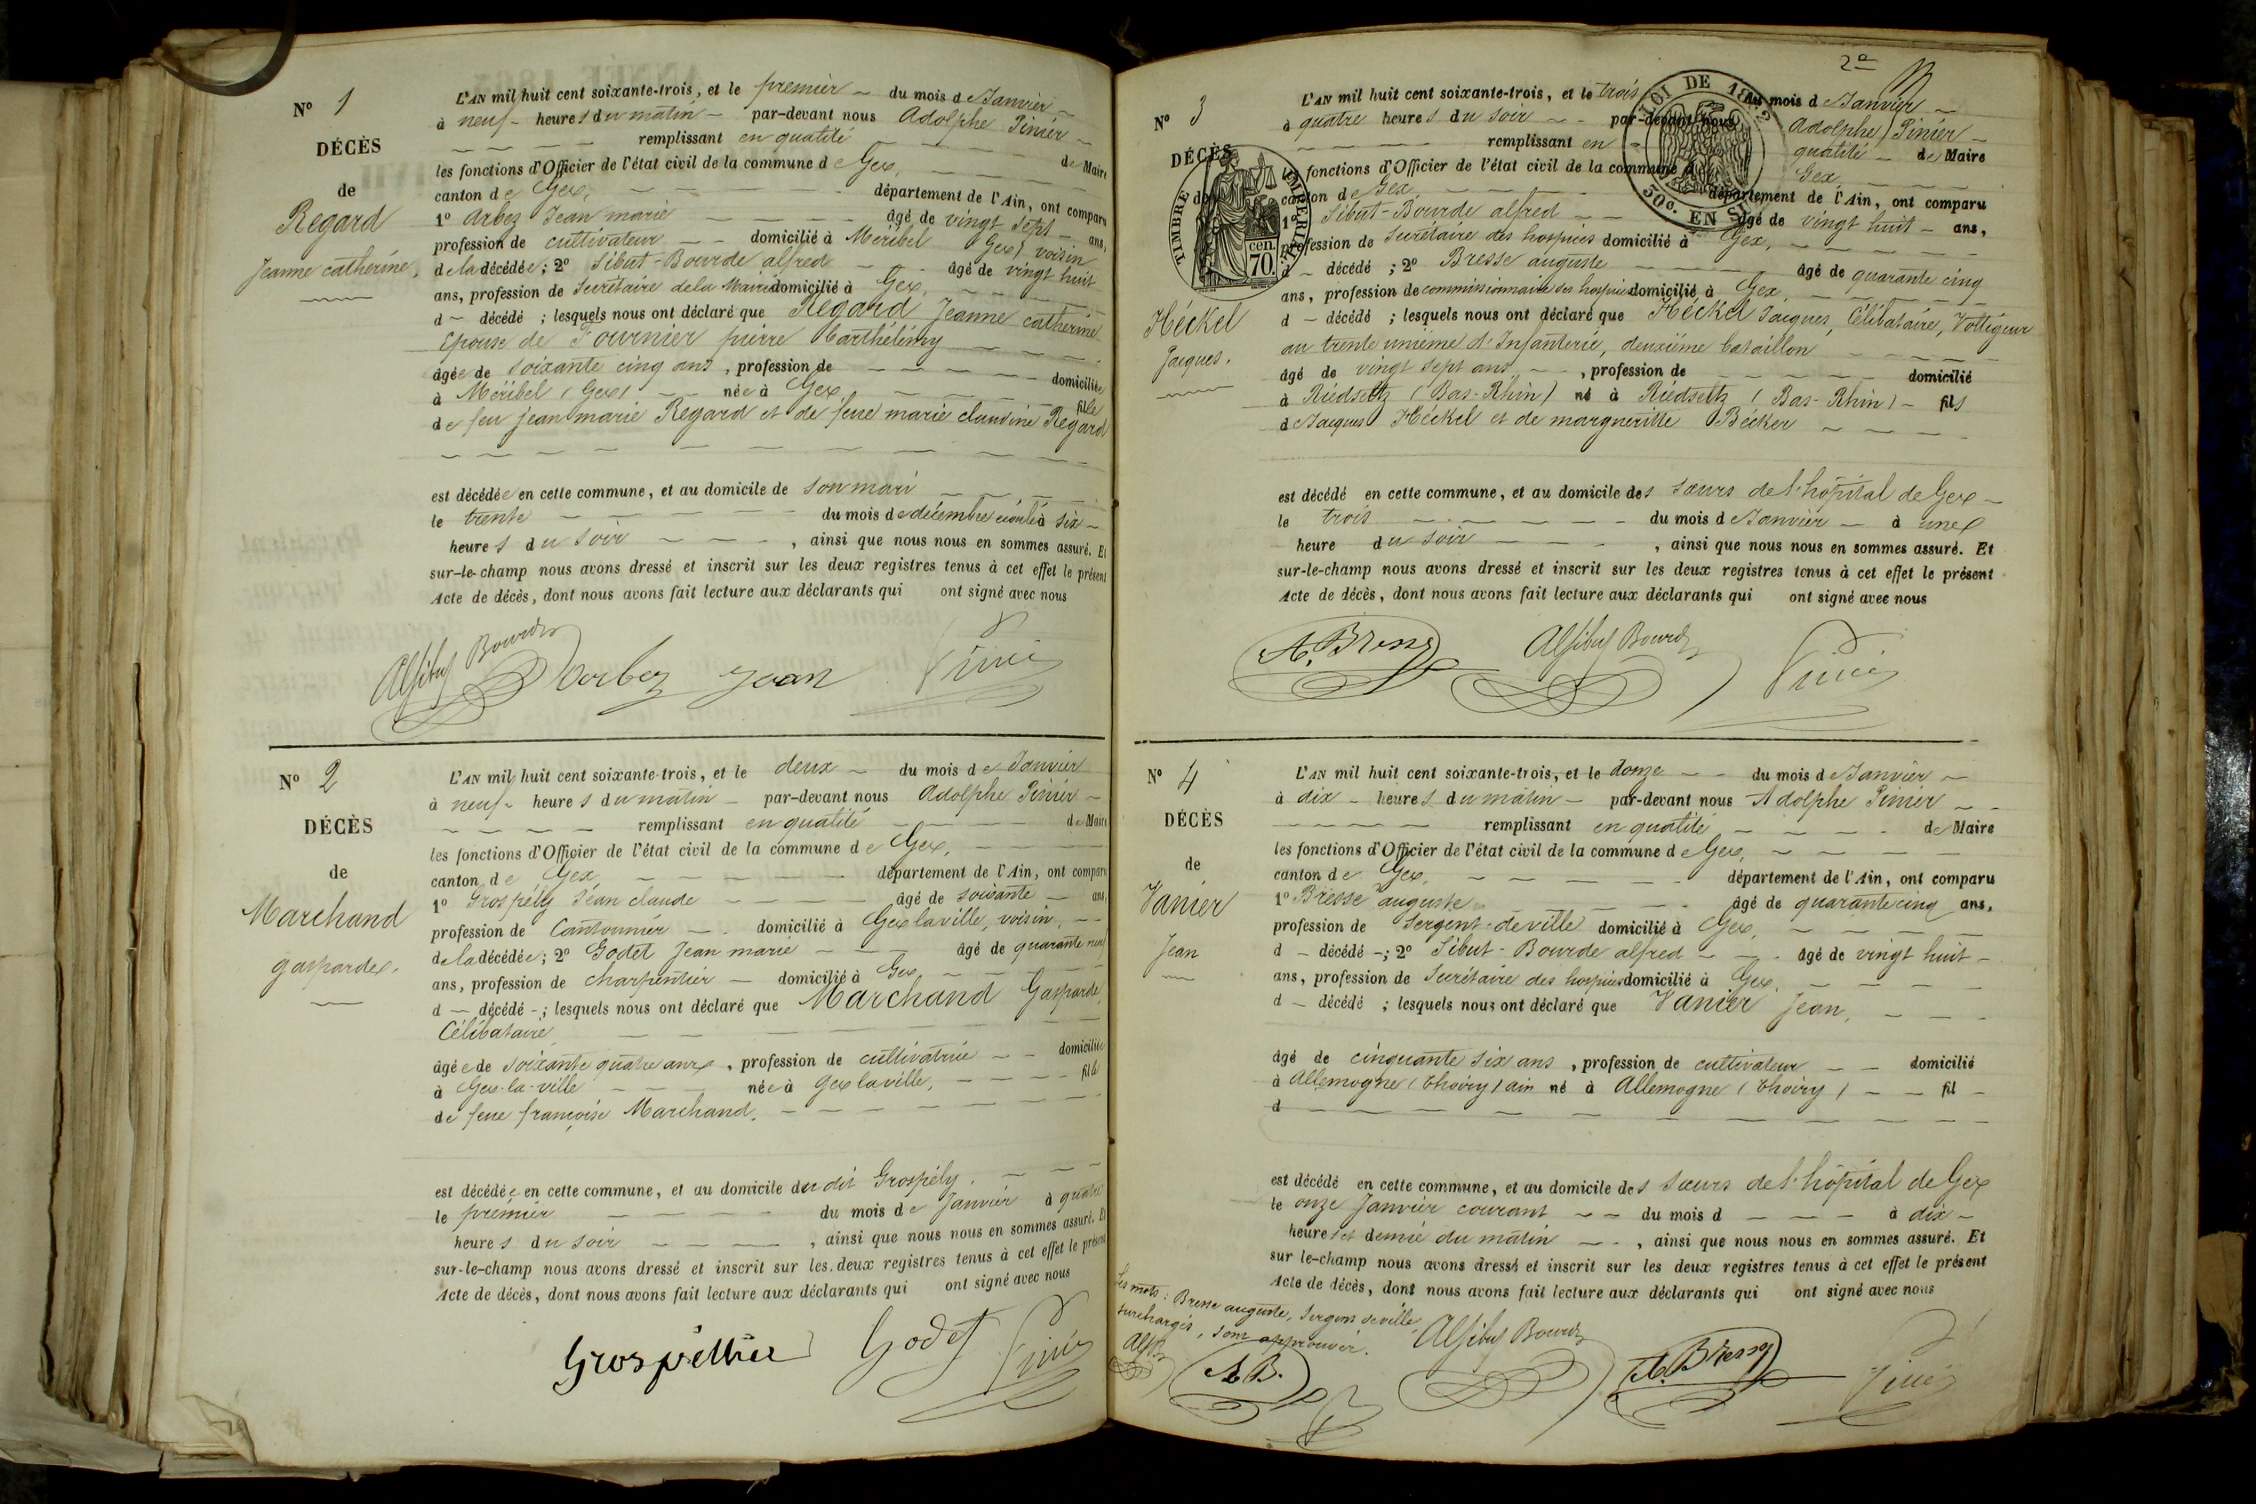 N° 1
DÉCÈS
de
Regard
Jeanne catherine,
L'AN mil huit cent soixante-trois, et le premier du mois de Janvier
à neuf heures du matin par-devant nous Adolphe Pinier
remplissant en qualité de Maire
les fonctions d'Officier de l'état civil de la commune de Gex,
canton de Gex, département de l'Ain, ont comparu
1° Arbez Jean marie âgé de vingt sept ans,
profession de cultivateur domicilié à Méribel (Gex) voisin
de la décédée; 2° Sibut-Bourde alfred âgé de vingt huit
ans, profession de Secrétaire de la Mairie domicilié à Gex,
d décédé ; lesquels nous ont déclaré que Regard Jeanne catherine
Epouse de Fournier pierre barthélimy
âgée de soixante cinq ans, profession de domiciliée
à Méribel (Gex) née à Gex, fille
de feu jean marie Regard et de feue marie claudine Regard
est décédée en cette commune, et au domicile de son mari
le trente du mois de décembre écoulé à six
heures du soir, ainsi que nous nous en sommes assuré. Et
sur-le-champ nous avons dressé et inscrit sur les deux registres tenus à cet effet le présent
Acte de décès, dont nous avons fait lecture aux déclarants qui ont signé avec nous
Alf Sibut Bourde Arbez Jean Pinier
N° 2
DÉCÈS
de
Marchand
gasparde.
L'AN mil huit cent soixante-trois, et le deux du mois de Janvier
à neuf heures du matin par-devant nous Adolphe Pinier
remplissant en qualité de Maire
les fonctions d'Officier de l'état civil de la commune de Gex,
canton de Gex, département de l'Ain, ont comparu
1° Grospély Jean claude âgé de soixante ans,
profession de Cantonnier domicilié à Gex la ville, voisin,
de la décédée; 2° Godet Jean marie âgé de quarante neuf
ans, profession de charpentier domicilié à Gex
d décédé ; lesquels nous ont déclaré que Marchand Gasparde,
Célibataire,
âgée de soixante quatre ans, profession de cultivatrice domiciliée
à Gex-la-ville née à Gex la ville, fille
de feue françoise Marchand.
est décédée en cette commune, et au domicile du dit Grospély.
le premier du mois de Janvier à quatre
heures du soir, ainsi que nous nous en sommes assuré. Et
sur-le-champ nous avons dressé et inscrit sur les deux registres tenus à cet effet le présent
Acte de décès, dont nous avons fait lecture aux déclarants qui ont signé avec nous
Grospellier Godet Pinier
2e
N° 3
DÉCÈS
de
Héckel
Jacques.
TIMBRE IMPÉRIAL
70 cen.
LOI DE 1862
50c. EN SUS
L'AN mil huit cent soixante-trois, et le trois du mois de Janvier
à quatre heures du soir par-devant nous Adolphe Pinier
remplissant en qualité de Maire
les fonctions d'Officier de l'état civil de la commune de Gex,
canton de Gex, département de l'Ain, ont comparu
1° Sibut-Bourde alfred âgé de vingt huit ans,
profession de Secrétaire des hospices domicilié à Gex,
d décédé ; 2° Bresse auguste âgé de quarante cinq
ans, profession de commissionnaire des hospices domicilié à Gex,
d décédé ; lesquels nous ont déclaré que Héckel Jacques, Célibataire, Voltigeur
au trente unième d'Infanterie, deuxième bataillon
âgé de vingt sept ans, profession de domicilié
à Riédseltz (Bas-Rhin) né à Riédseltz (Bas-Rhin) fils
de Jacques Héckel et de margueritte Bécker
est décédé en cette commune, et au domicile des sœurs de l'hôpital de Gex
le trois du mois de Janvier à une
heure du soir, ainsi que nous nous en sommes assuré. Et
sur-le-champ nous avons dressé et inscrit sur les deux registres tenus à cet effet le présent
Acte de décès, dont nous avons fait lecture aux déclarants qui ont signé avec nous
A. Bresse Alf Sibut Bourde Pinier
N° 4
DÉCÈS
de
Vanier
Jean
L'AN mil huit cent soixante-trois, et le douze du mois de Janvier
à dix heures du matin par-devant nous Adolphe Pinier
remplissant en qualité de Maire
les fonctions d'Officier de l'état civil de la commune de Gex,
canton de Gex, département de l'Ain, ont comparu
1° Bresse auguste âgé de quarante cinq ans,
profession de Sergent-de ville domicilié à Gex,
d décédé ; 2° Sibut-Bourde alfred âgé de vingt huit
ans, profession de Secrétaire des hospices domicilié à Gex,
d décédé ; lesquels nous ont déclaré que Vanier Jean,
âgé de cinquante six ans, profession de cultivateur domicilié
à Allemogne (Thoiry) ain né à Allemogne (Thoiry) fil
d
est décédé en cette commune, et au domicile des sœurs de l'hôpital de Gex
le onze Janvier courant du mois d à dix
heures et demie du matin, ainsi que nous nous en sommes assuré. Et
sur le-champ nous avons dressé et inscrit sur les deux registres tenus à cet effet le présent
Acte de décès, dont nous avons fait lecture aux déclarants qui ont signé avec nous
Les mots : Bresse auguste, Sergent de ville,
surchargés, sont approuvés.
Alf B. A. B. Alf Sibut Bourde A. Bresse Pinier